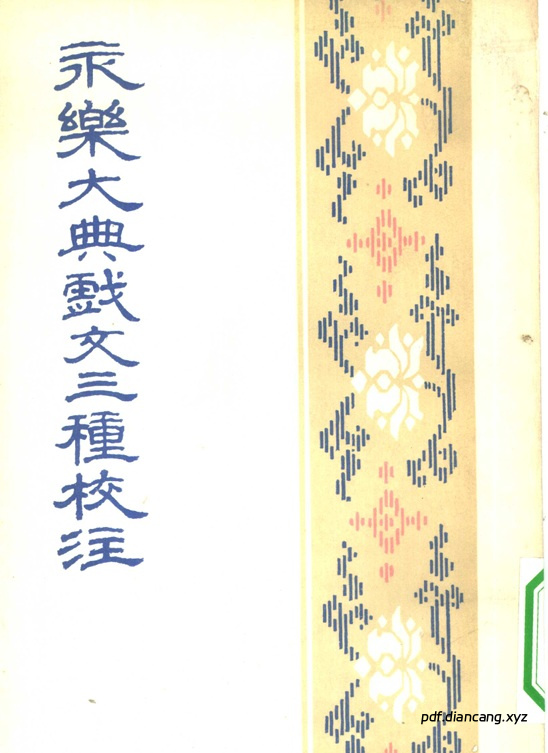 永樂大典戲文三種校注
pdf.diancang.xyz